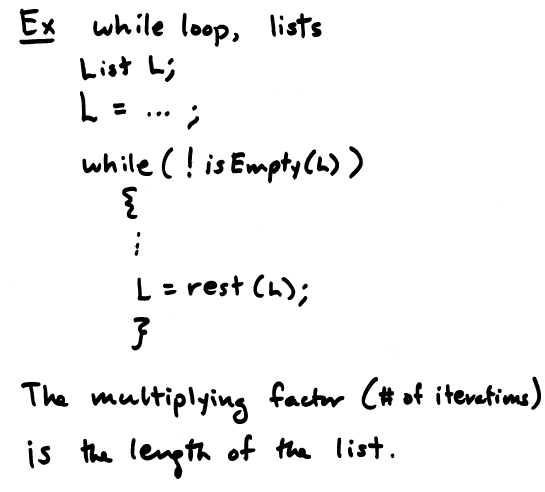 Ex while loop, lists
List L;
L = ... ;
while ( ! isEmpty(L) )
{
⋮
L = rest (L);
}
The multiplying factor (# of iterations)
is the length of the list.